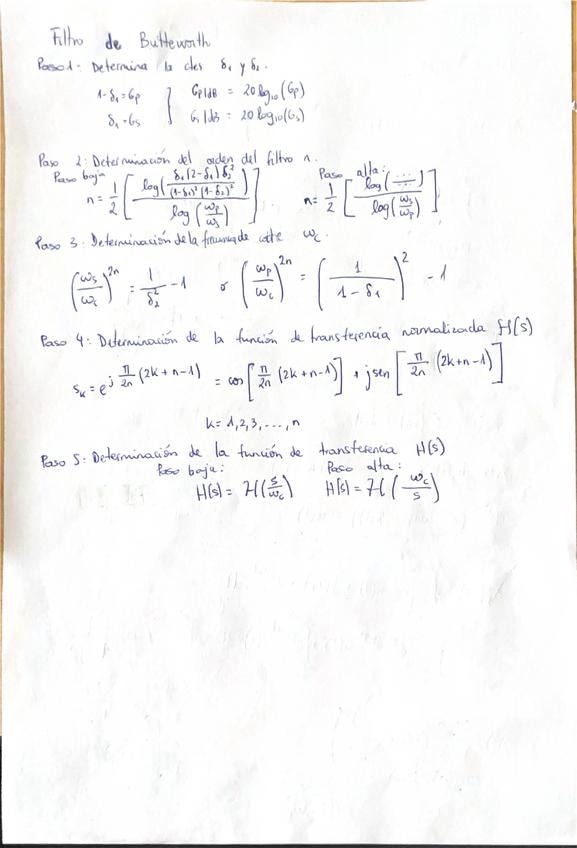 Filtro de Butteworth
Paso 1: Determina la δ₁ y δ₂.
1-δ₁=Gp } Gp|dB = 20 log₁₀(Gp)
δ₁=Gs } Gs|dB = 20 log₁₀(Gs)
Paso 2: Determinación del orden del filtro n.
Paso baja Paso alta:
n = 1/2 [ log( δ₁(2-δ₁)δ₂² / (1-δ₁)²(1-δ₂)² ) / log(ωp/ωs) ] n = 1/2 [ log(...../.....) / log(ωs/ωp) ]
Paso 3: Determinación de la de ωc.
(ωs/ωc)²ⁿ = 1/δ₂² - 1 o (ωp/ωc)²ⁿ = ( 1 / 1-δ₁ )² - 1
Paso 4: Determinación de la función de transferencia normalizada H(s)
sₖ = e^(j π/2n (2k+n-1)) = cos[ π/2n (2k+n-1) ] + j sen [ π/2n (2k+n-1) ]
k = 1,2,3,...,n
Paso 5: Determinación de la función de transferencia H(s)
Paso baja: Paso alta:
H(s) = H(s/ωc) H(s) = H(ωc/s)